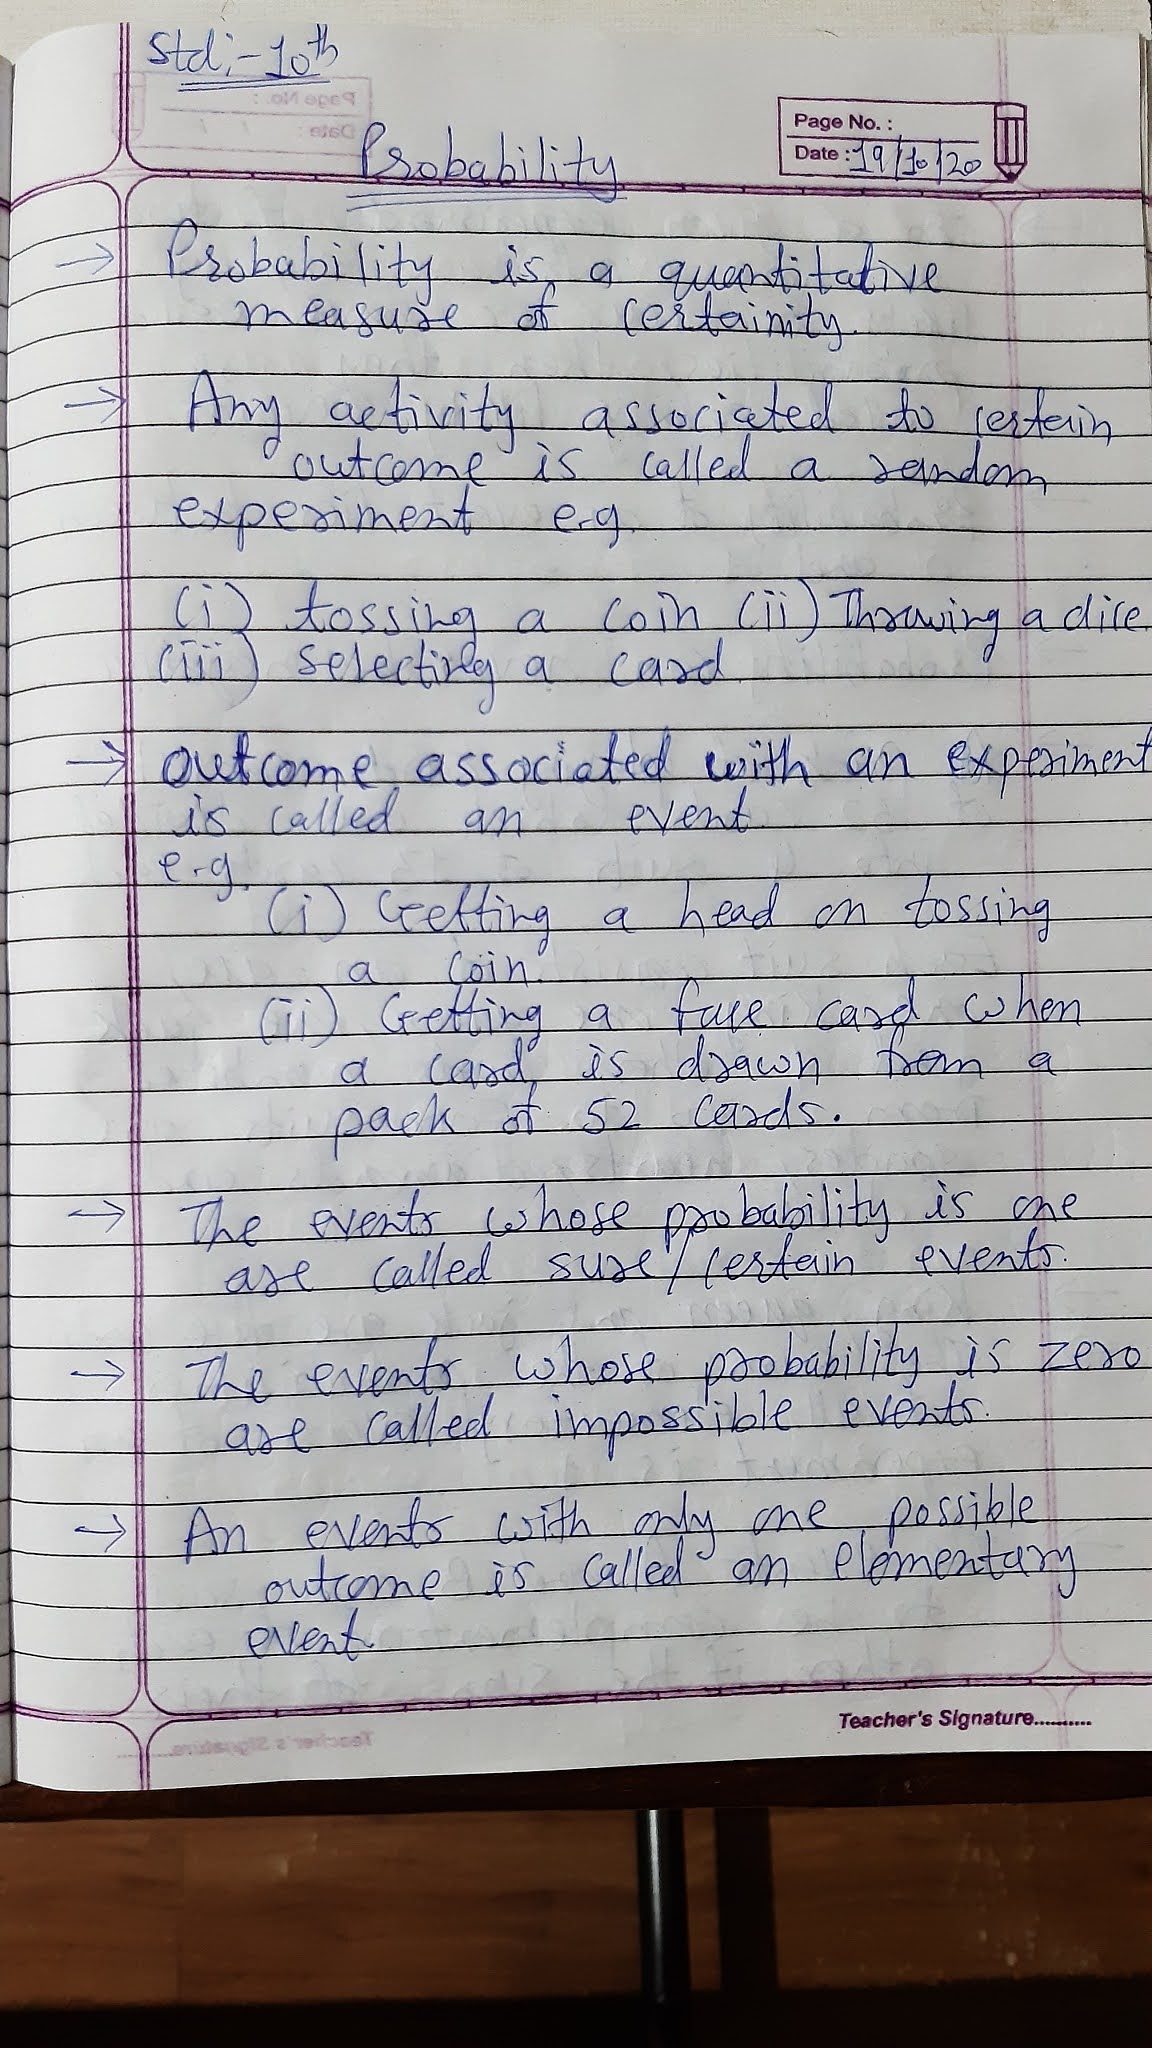 Std:- 10th
Page No. :
Date : 19/10/20
Probability
→ Probability is a quantitative
measure of certainity.
→ Any activity associated to certain
outcome is called a random
experiment e.g.
(i) tossing a coin (ii) Throwing a dice
(iii) selecting a card
→ outcome associated with an experiment
is called an event.
e.g.
(i) Getting a head on tossing
a coin.
(ii) Getting a face card when
a card is drawn from a
pack of 52 cards.
→ The events whose probability is one
are called sure/certain events.
→ The events whose probability is zero
are called impossible events.
→ An events with only one possible
outcome is called an elementary
event
Teacher's Signature..........